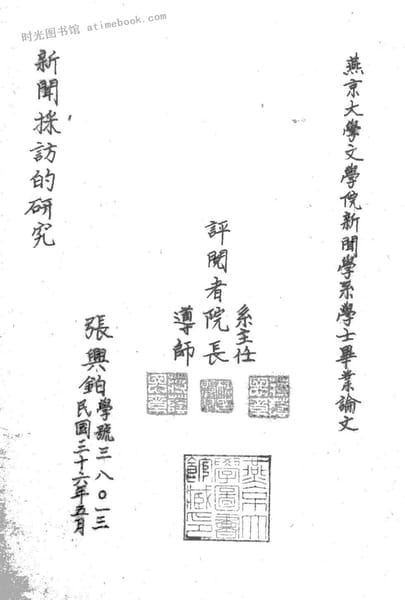 时光图书馆 atimebook.com
燕京大學文學院新聞學系學士畢業論文
評閱者
系主任
院長
導師
新聞採訪的研究
張興鉑
學號三八〇一三
民國三十六年五月
燕京大
學圖書
館藏印